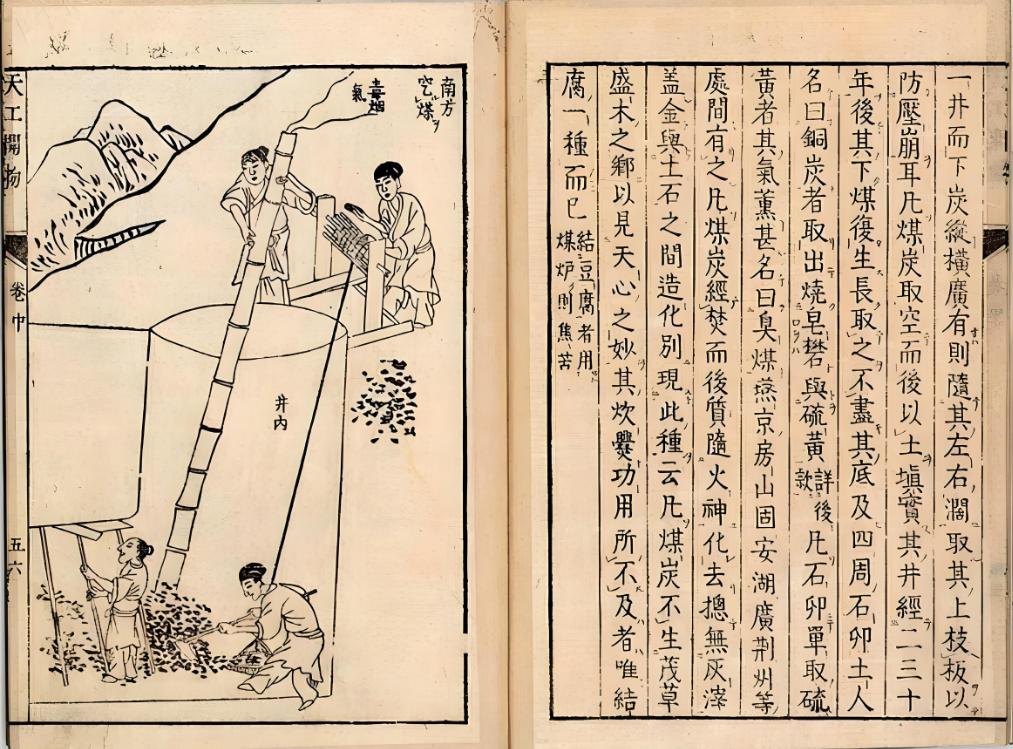 一井而下炭縱橫廣有則隨其左右濶取其上枝板以
防壓崩耳凡煤炭取空而後以土塡實其井經二三十
年後其下煤復生長取之不盡其底及四周石卵土人
名曰銅炭者取出燒皂礬與硫黃詳後款凡石卵單取硫
黃者其氣薰甚名曰臭煤燕京房山固安湖廣荆州等
處間有之凡煤炭經焚而後質隨火神化去摠無灰滓
盖金與土石之間造化別現此種云凡煤炭不生茂草
盛木之鄉以見天心之妙其炊爨功用所不及者唯結
腐一種而已結豆腐者用
煤炉則焦苦
南方
穵煤
毒烟
氣
井內
天工開物
卷中
五六